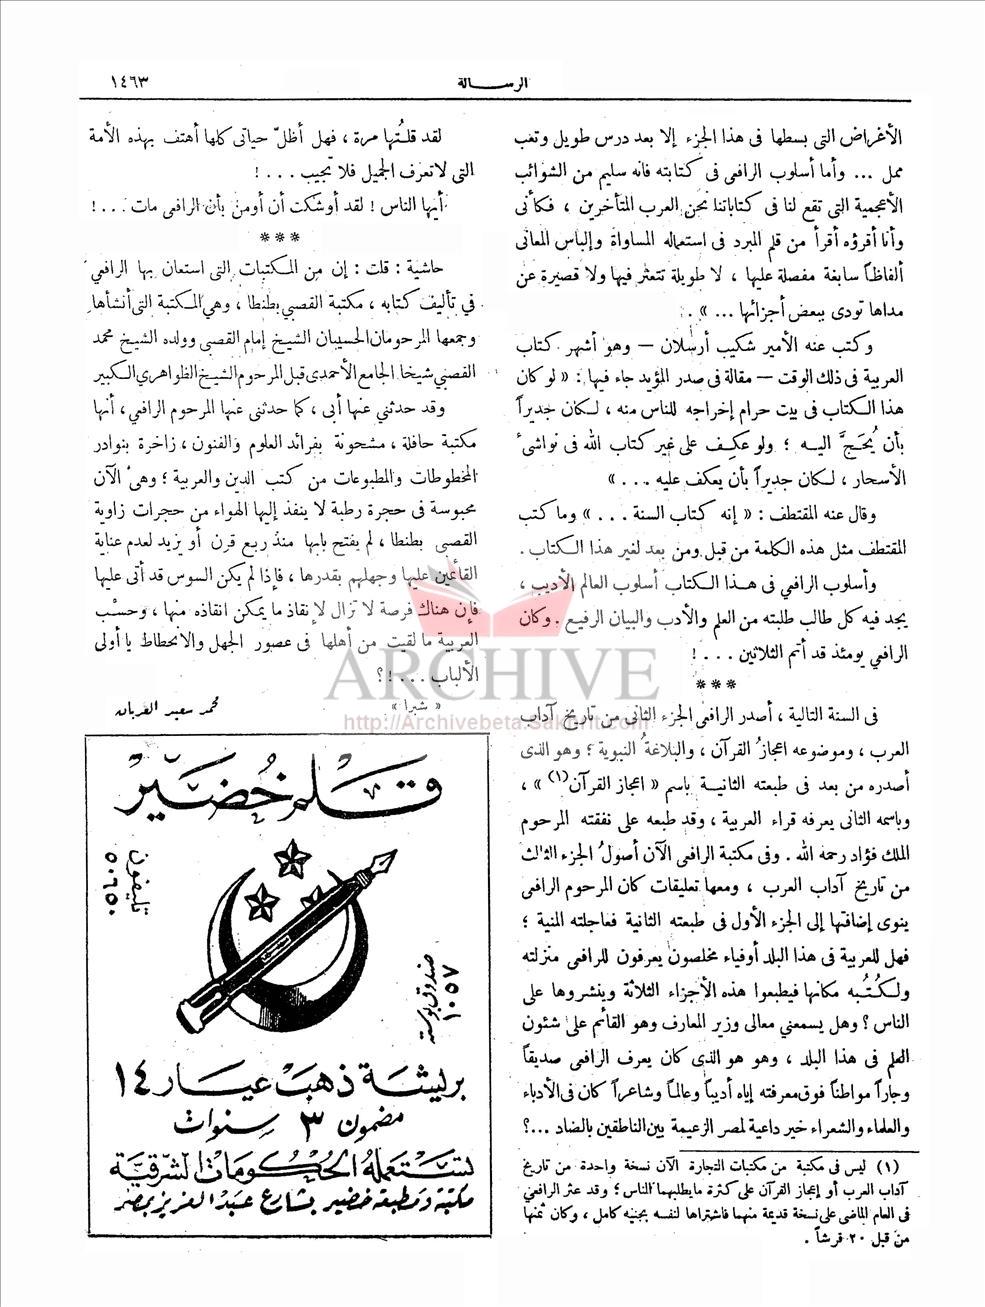 ١٤٦٣
الرسالة
الأغراض التى بسطها فى هذا الجزء إلا بعد درس طويل وتعب
ممل ... وأما أسلوب الرافعى فى كتابته فانه سليم من الشوائب
الأعجمية التى تقع لنا فى كتاباتنا نحن العرب المتأخرين ، فكأنى
وأنا أقرؤه أقرأ من قلم المبرد فى استعماله المساواة وإلباس المعانى
ألفاظاً سابغة مفصلة عليها ، لا طويلة تتعثر فيها ولا قصيرة عن
مداها تودى ببعض أجزائها ... » .
وكتب عنه الأمير شكيب أرسلان — وهو أشهر كتاب
العربية فى ذلك الوقت — مقالة فى صدر المؤيد جاء فيها : « لو كان
هذا الكتاب فى بيت حرام إخراجه للناس منه ، لكان جديراً
بأن يُحَجَّ اليه ؛ ولو عكف على غير كتاب الله فى نواشىء
الأسحار ، لكان جديراً بأن يعكف عليه ... »
وقال عنه المقتطف : « إنه كتاب السنة . . . » وما كتب
المقتطف مثل هذه الكلمة من قبل ومن بعد لغير هذا الكتاب .
وأسلوب الرافعي فى هذا الكتاب أسلوب العالم الأديب ،
يجد فيه كل طالب طلبته من العلم والأدب والبيان الرفيع . وكان
الرافعي يومئذ قد أتم الثلاثين . . . !
***
فى السنة التالية ، أصدر الرافعى الجزء الثانى من تاريخ آداب
العرب ، وموضوعه اعجازُ القرآن ، والبلاغةُ النبوية ؛ وهو الذى
أصدره من بعد فى طبعته الثانية باسم « اعجاز القرآن(١) » ،
وباسمه الثانى يعرفه قراء العربية ، وقد طبعه على نفقته المرحوم
الملك فؤاد رحمه الله . وفى مكتبة الرافعى الآن أصولُ الجزء الثالث
من تاريخ آداب العرب ، ومعها تعليقات كان المرحوم الرافعى
ينوى إضافتها إلى الجزء الأول فى طبعته الثانية فعاجلته المنية ؛
فهل للعربية فى هذا البلد أوفياء مخلصون يعرفون للرافعى منزلته
ولكُتُبه مكانها فيطبعوا هذه الأجزاء الثلاثة وينشروها على
الناس ؟ وهل يسمعني معالى وزير المعارف وهو القائم على شئون
العلم فى هذا البلد ، وهو هو الذى كان يعرف الرافعى صديقاً
وجاراً مواطناً فوق معرفته إياه أديباً وعالماً وشاعراً كان فى الأدباء
والعلماء والشعراء خير داعية لمصر الزعيمة بين الناطقين بالضاد ...؟
(١) ليس فى مكتبة من مكتبات التجارة الآن نسخة واحدة من تاريخ
آداب العرب أو إعجاز القرآن على كثرة ما يطلبهما الناس ؛ وقد عثر الرافعي
فى العام الماضى على نسخة قديمة منهما فاشتراها لنفسه بجنيه كامل ، وكان ثمنها
من قبل ٢٠ قرشاً .
لقد قلتُها مرة ، فهل أظلّ حياتى كلها أهتف بهذه الأمة
التى لا تعرف الجميل فلا تجيب . . . !
أيها الناس ! لقد أوشكت أن أومن بأن الرافعى مات . . . !
***
حاشية : قلت : إن من المكتبات التى استعان بها الرافعي
في تأليف كتابه ، مكتبة القصبي بطنطا ، وهي المكتبة التى أنشأها
وجمعها المرحومان الحسيبان الشيخ إمام القصبى وولده الشيخ محمد
القصبي شيخا الجامع الأحمدى قبل المرحوم الشيخ الظواهري الكبير
وقد حدثني عنها أبى ، كما حدثنى عنها المرحوم الرافعي ، أنها
مكتبة حافلة ، مشحونة بفرائد العلوم والفنون ، زاخرة بنوادر
المخطوطات والمطبوعات من كتب الدين والعربية ؛ وهى الآن
محبوسة فى حجرة رطبة لا ينفذ إليها الهواء من حجرات زاوية
القصبى بطنطا ، لم يفتح بابها منذ ربع قرن أو يزيد لعدم عناية
القائمين عليها وجهلهم بقدرها ، فإذا لم يكن السوس قد أتى عليها
فإن هناك فرصة لا تزال لإنقاذ ما يمكن انقاذه منها ، وحسْب
العربية ما لقيت من أهلها فى عصور الجهل والانحطاط يا أولى
الألباب . . . !؟
« شبرا »
محمد سعيد العريان
ARCHIVE
http://Archivebeta.Sakhrit.com
قلم خُضَير
تليفون
٥٠٦٥٠
صندوق بوسته
١٠٥٧
بريشة ذهب عيار ١٤
مضمون ٣ سنوات
تستعمله الحكومات الشرقية
مكتبة ومطبعة خضير بشارع عبد العزيز بمصر